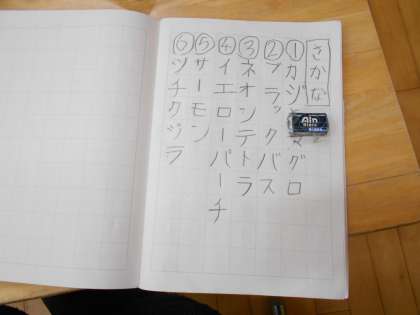 さかな
①カジマグロ
②ブラックバス
③ネオンテトラ
④イエローパーチ
⑤サーモン
⑥ツチクジラ
Ain